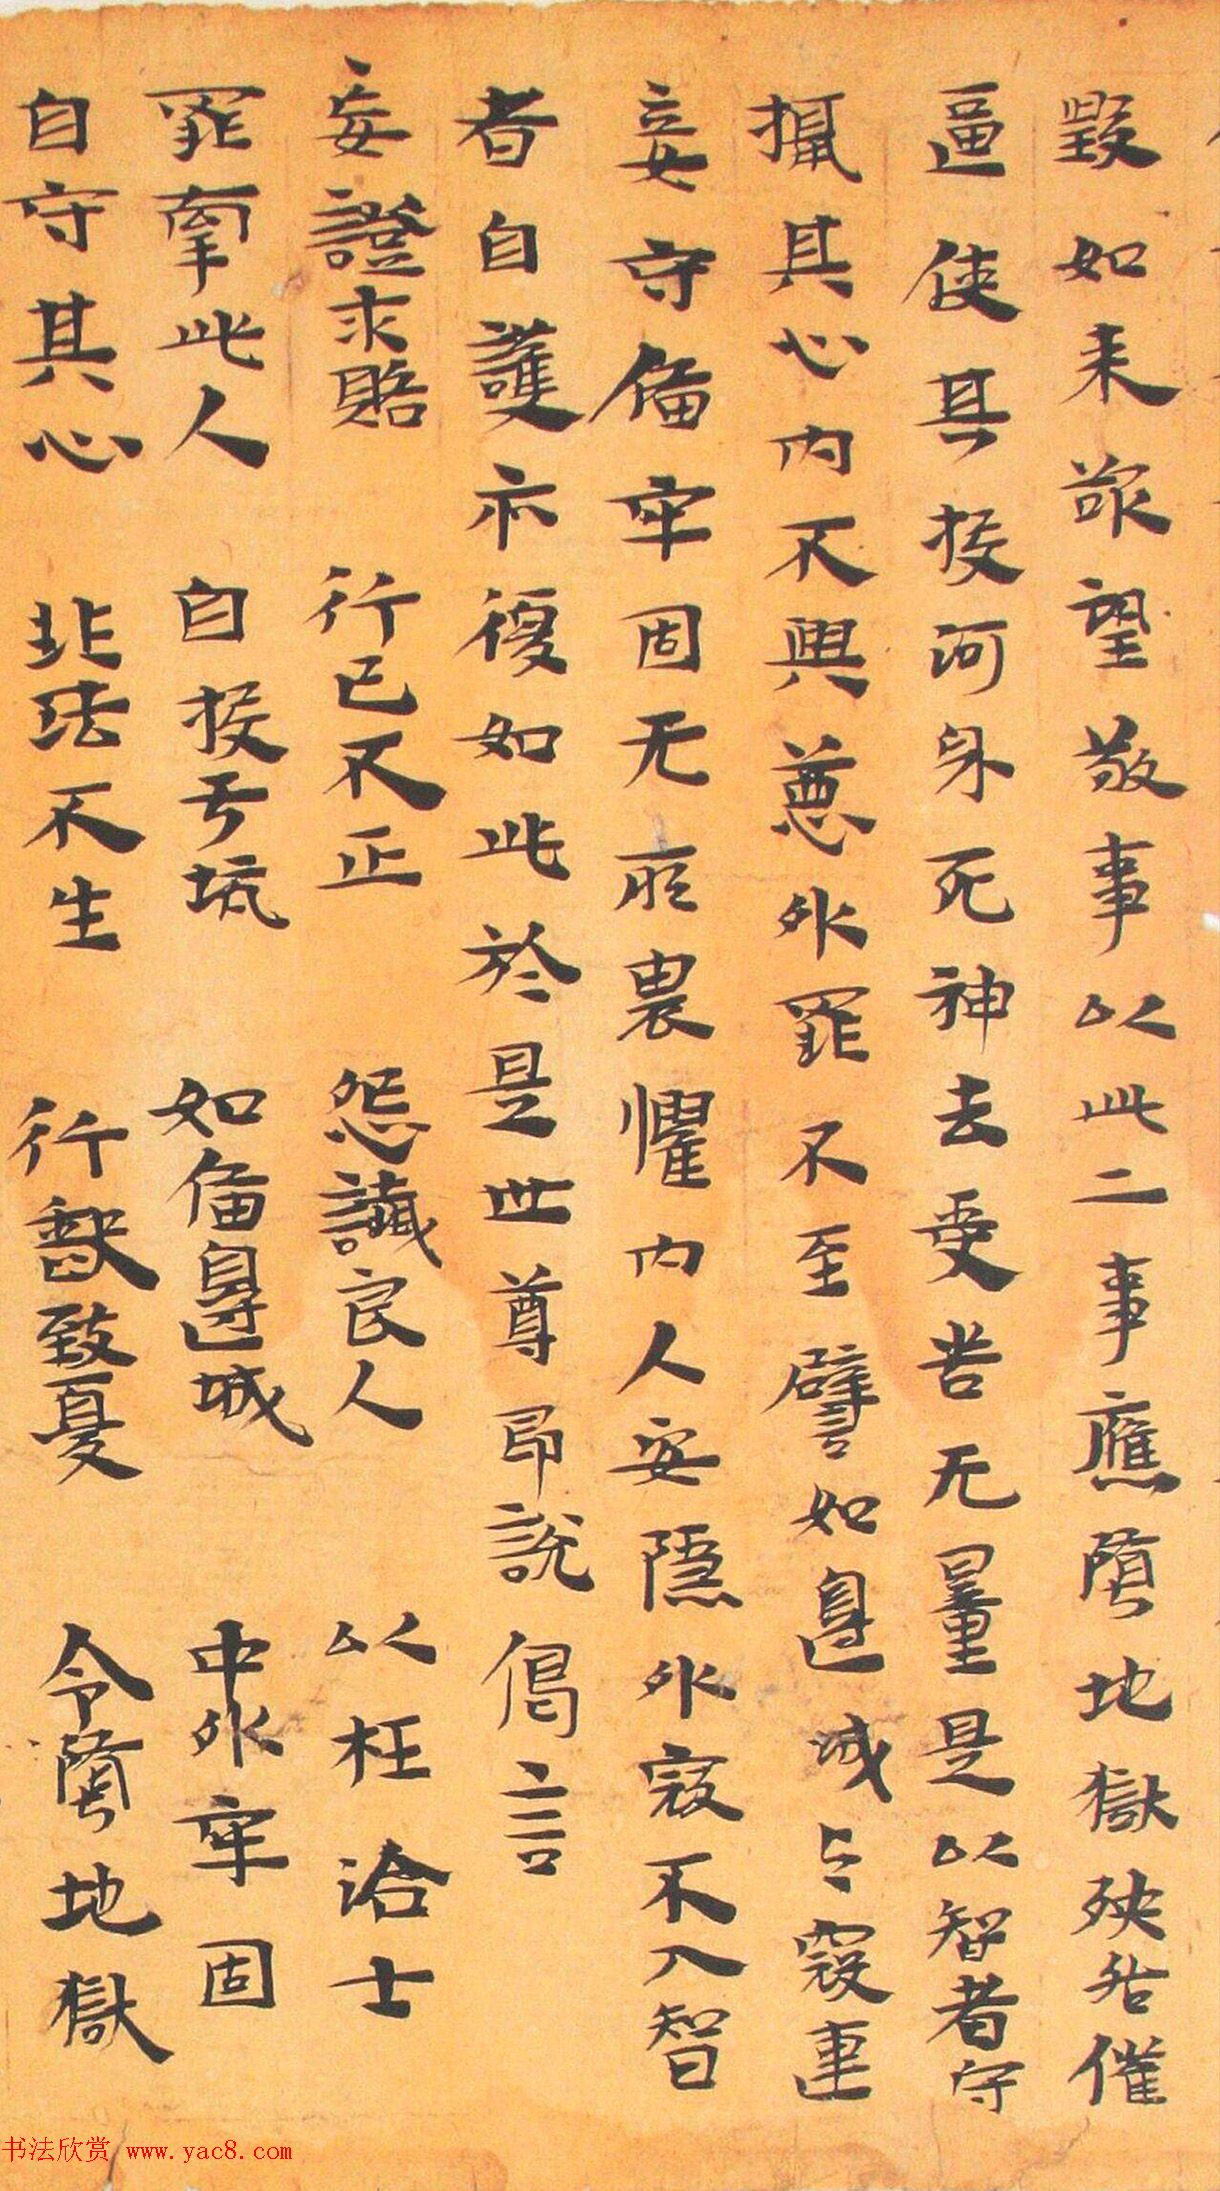 毀如来欲望敬事以此二事應墮地獄殃咎催
逼使其投河身死神去受苦无量是以智者守
攝其心内不興惡外罪不至譬如邊城与寇連
妾守備牢固无所畏懼内人安隱外寇不入智
者自護亦復如此於是世尊即說偈言
妄證求賂 行已不正 怨譖良人 以枉治士
罪牽此人 自投于坑 如備邊城 中外牢固
自守其心 非法不生 行缺致憂 令墮地獄
书法欣赏 www.yac8.com